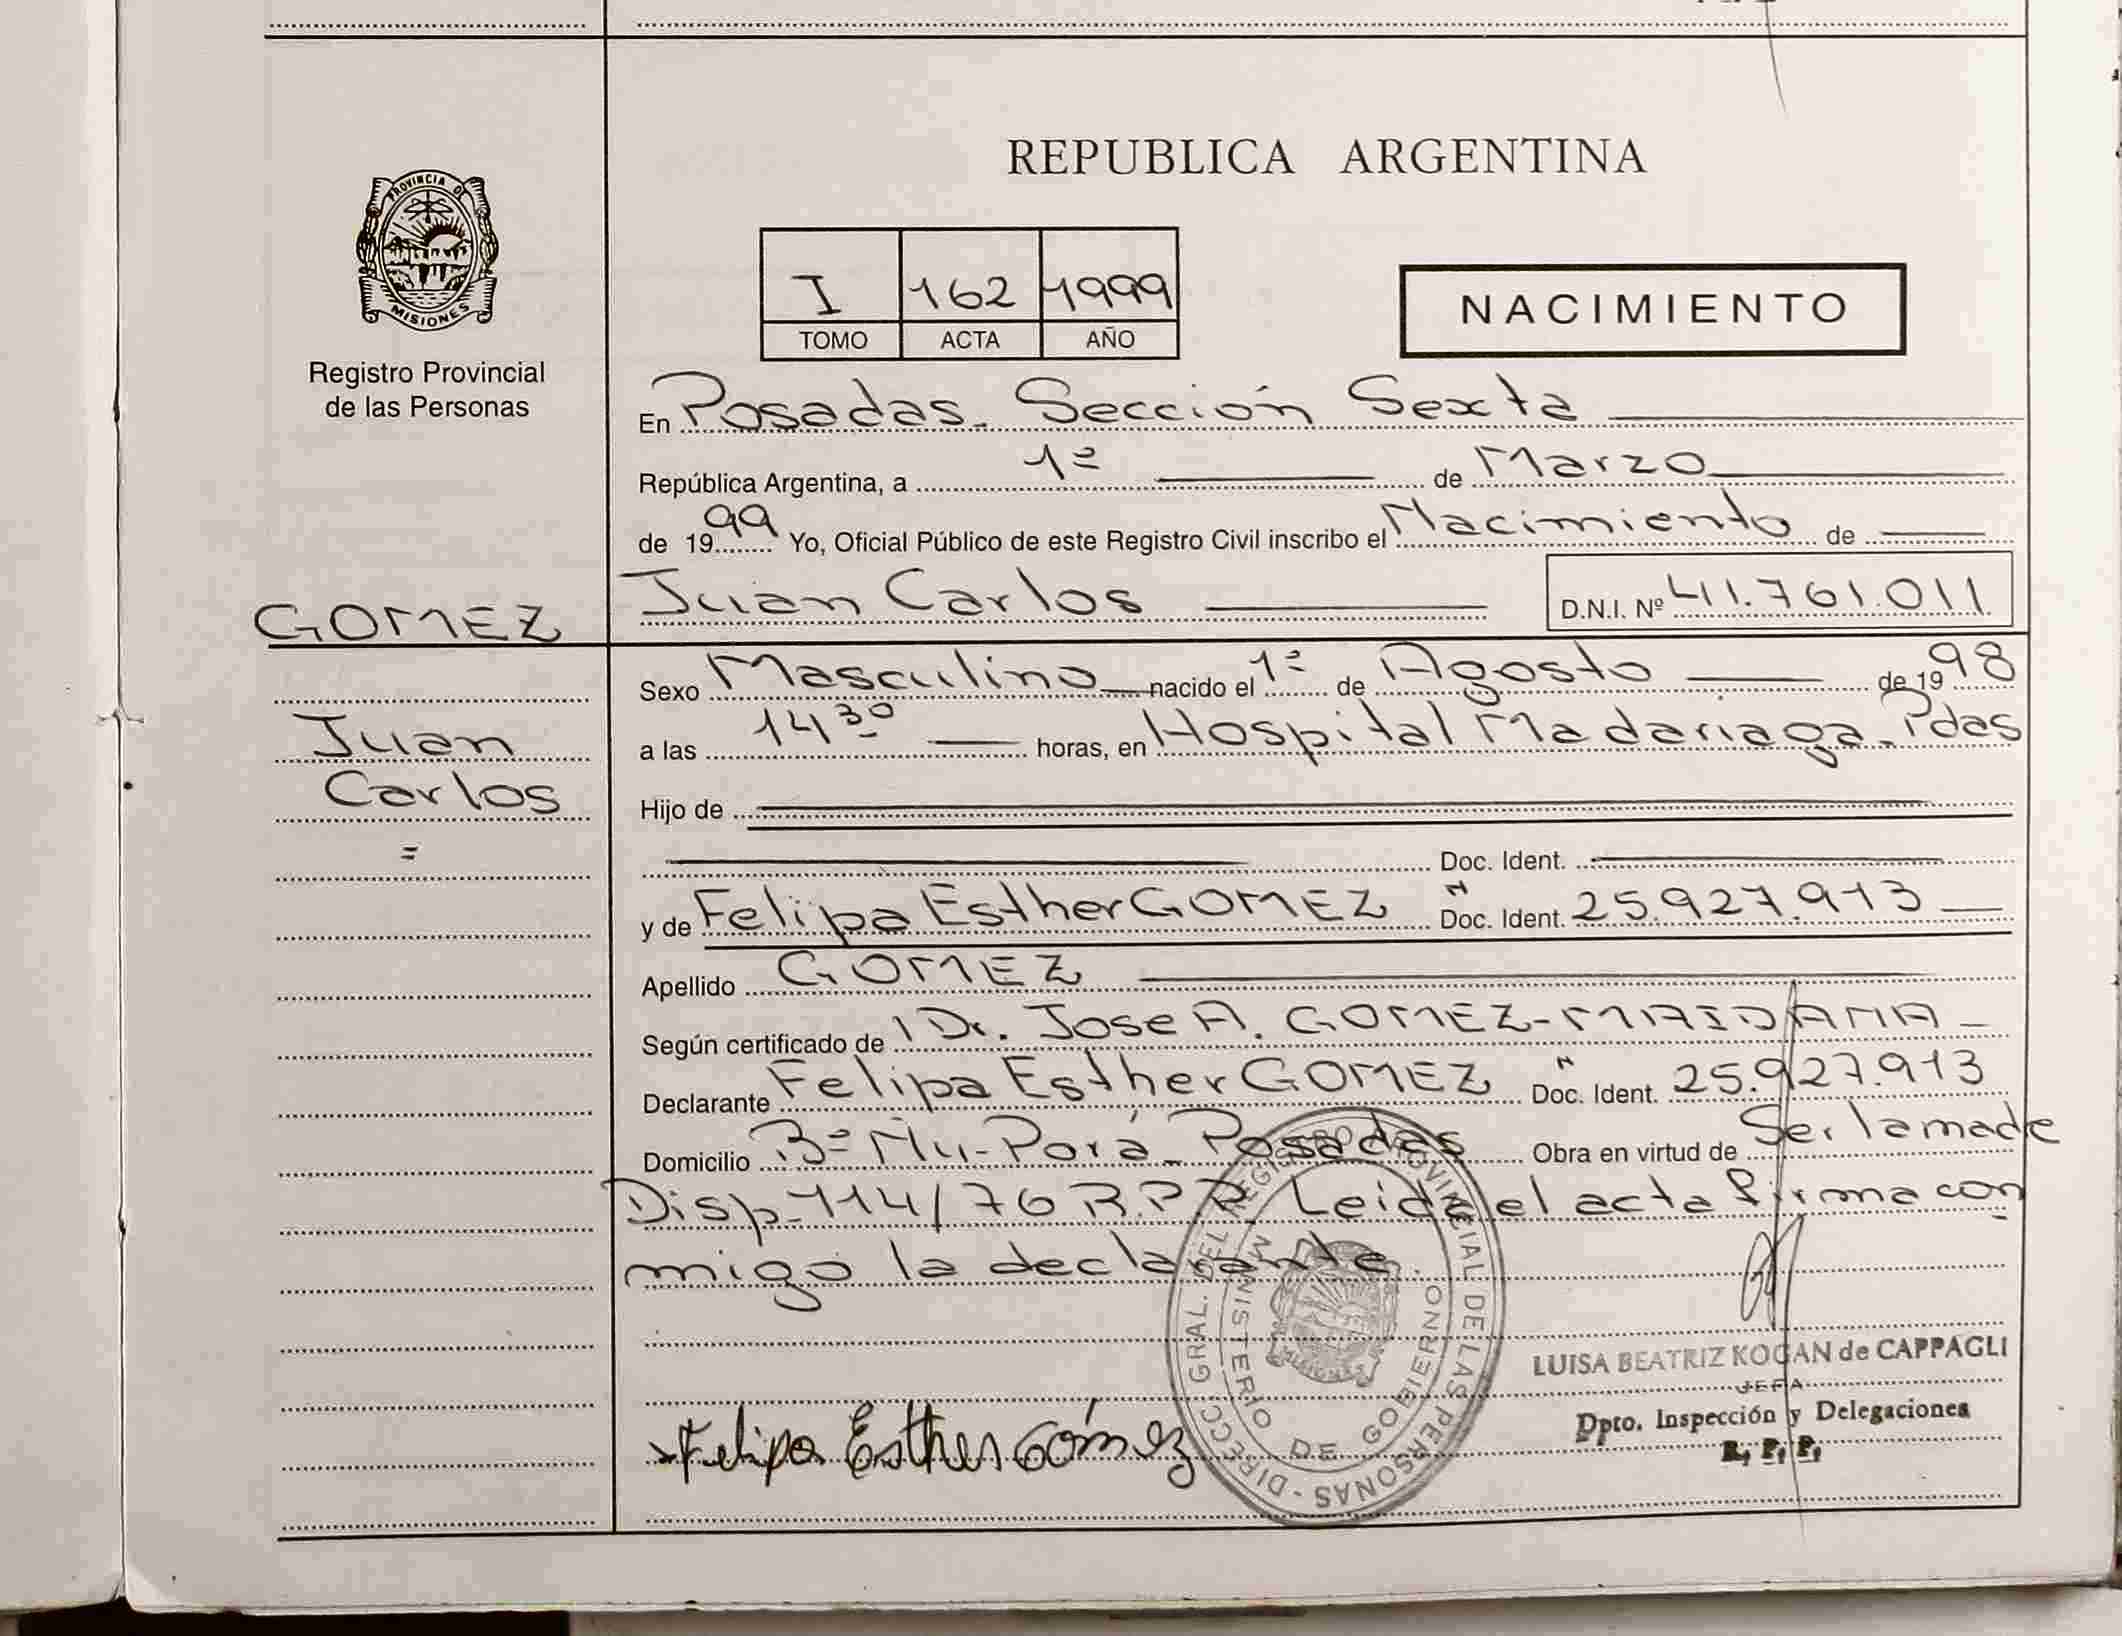 REPUBLICA ARGENTINA
PROVINCIA DE MISIONES
Registro Provincial
de las Personas
I 162 1999
TOMO ACTA AÑO
NACIMIENTO
En Posadas. Sección Sexta
República Argentina, a 1º de Marzo
de 1999 Yo, Oficial Público de este Registro Civil inscribo el Nacimiento de
GOMEZ Juan Carlos D.N.I. Nº 41.761.011
Sexo Masculino nacido el 1º de Agosto de 1998
Juan a las 14 30 horas, en Hospital Madariaga. Pdas
Carlos
=
Hijo de
Doc. Ident.
y de Felipa Esther GOMEZ Doc. Ident. 25.927.913
Apellido GOMEZ
Según certificado de Dr. Jose A. GOMEZ-MAIDANA
Declarante Felipa Esther GOMEZ Doc. Ident. 25.927.913
Domicilio Bº Ñu-Porá-Posadas Obra en virtud de Ser la madre
Disp-114/76 R.P.P. Leida el acta firma con
migo la declarante.
DIRECC. GRAL. DEL REGISTRO PROVINCIAL DE LAS PERSONAS -
MINISTERIO DE GOBIERNO
LUISA BEATRIZ KOGAN de CAPPAGLI
JEFA
Dpto. Inspección y Delegaciones
R. P. P.
Felipa Esther Gómez